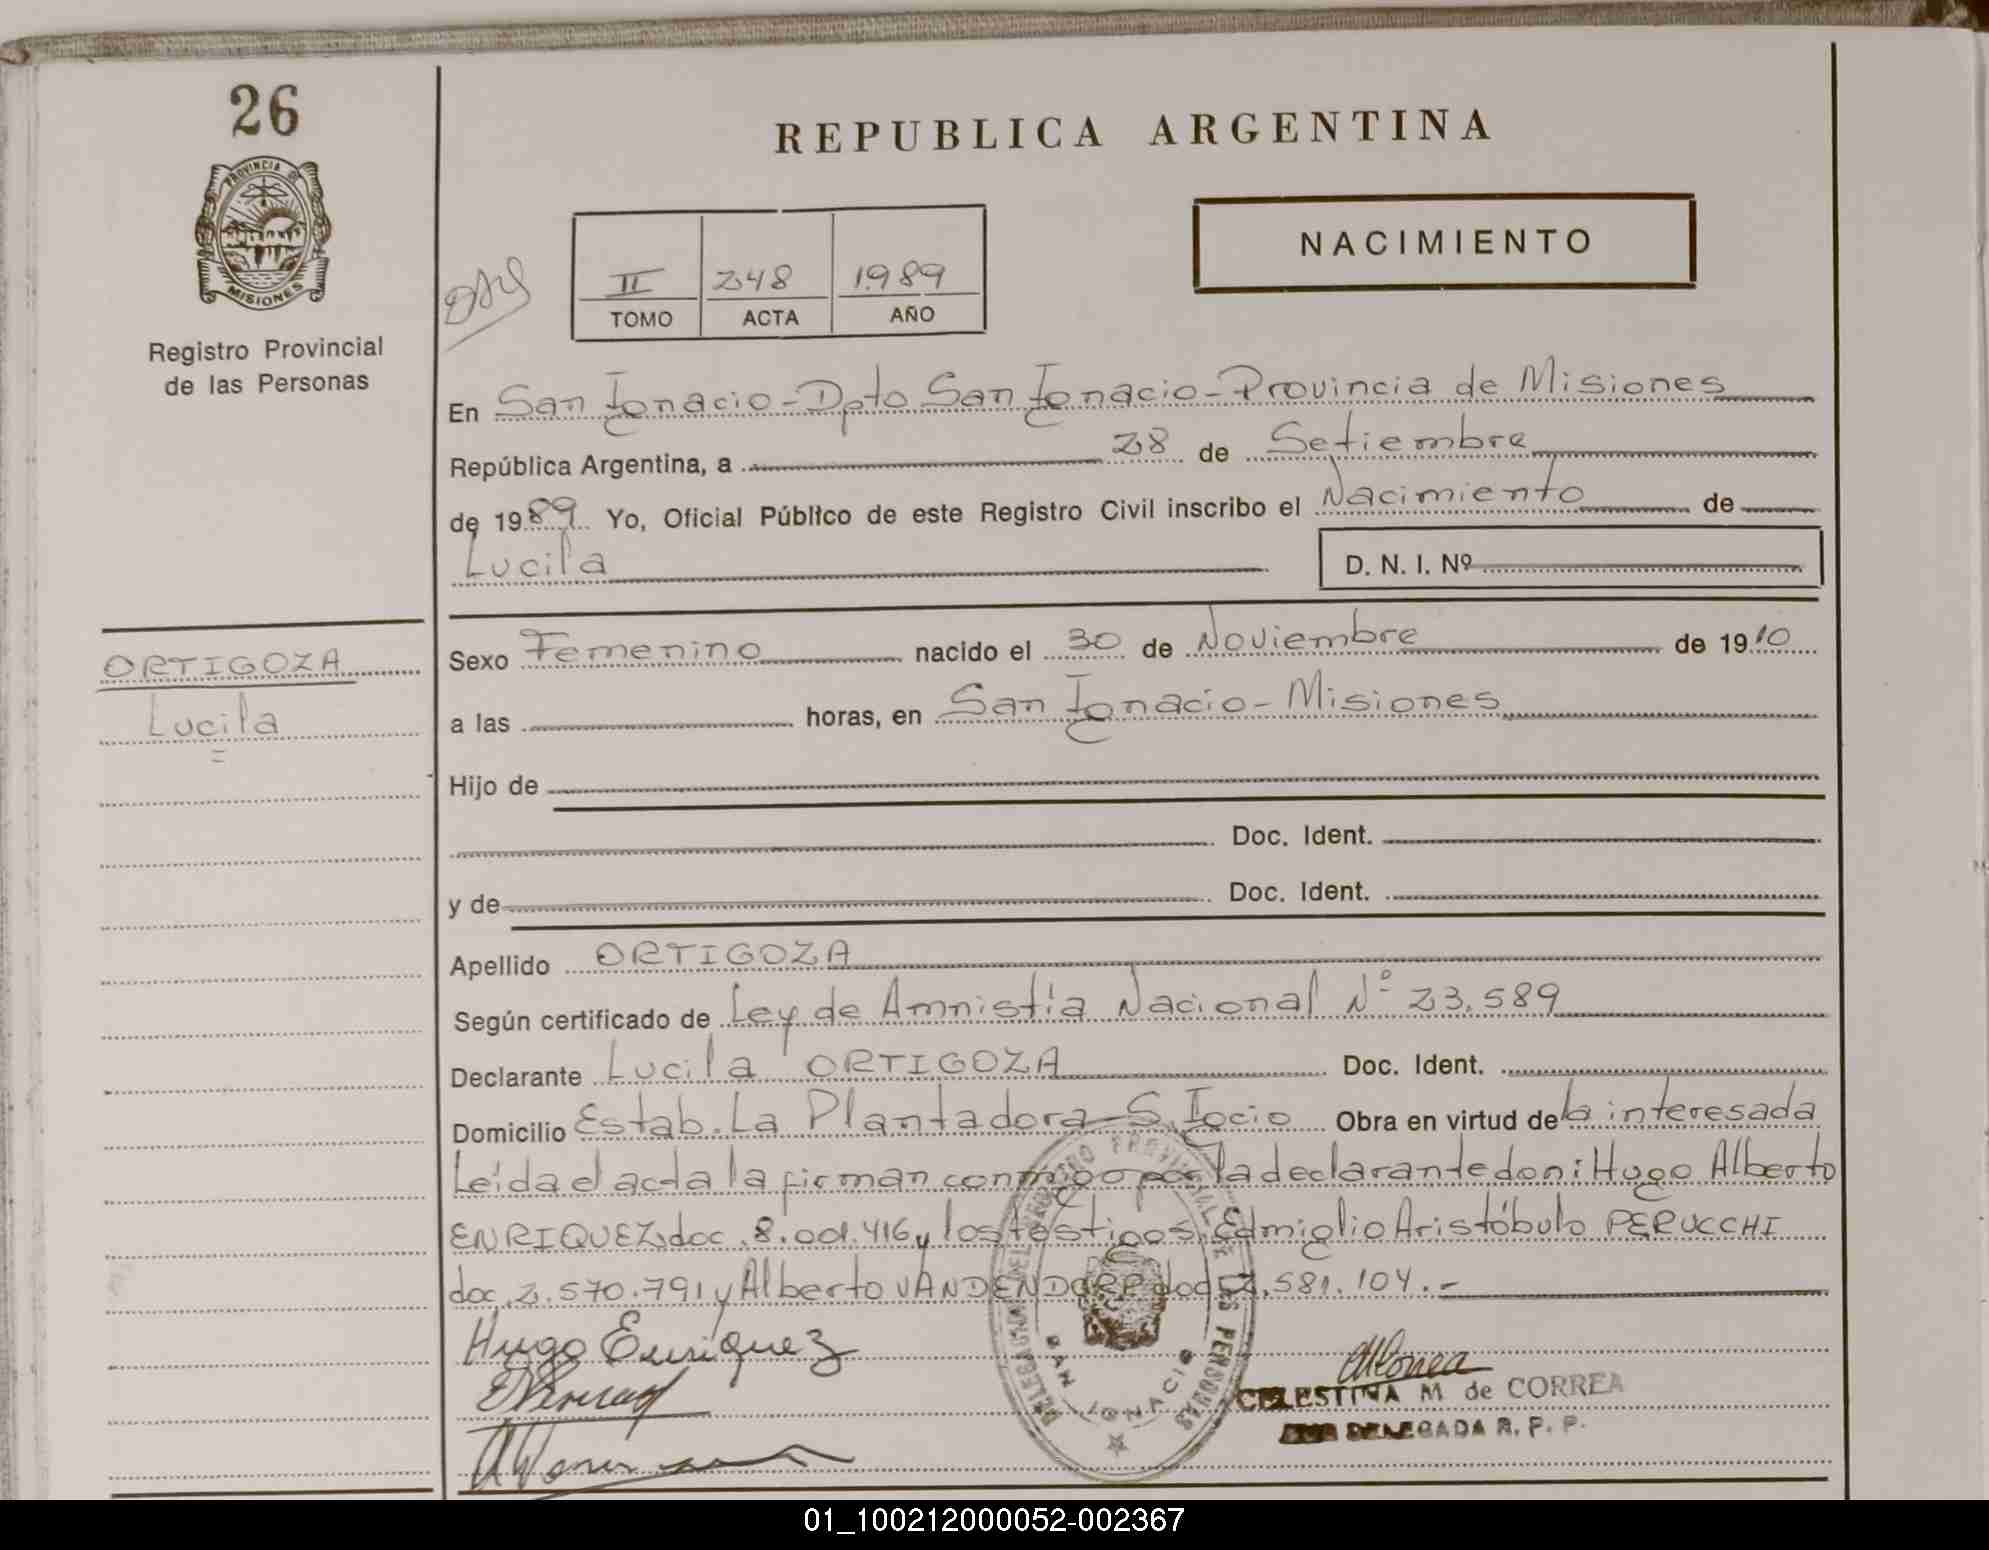 26
REPUBLICA ARGENTINA
PROVINCIA DE
MISIONES
Registro Provincial
de las Personas
NACIMIENTO
II 248 1989
TOMO ACTA AÑO
En San Ignacio - Dpto San Ignacio - Provincia de Misiones
República Argentina, a 28 de Setiembre
de 1989 Yo, Oficial Público de este Registro Civil inscribo el Nacimiento de
Lucila
D. N. I. Nº
ORTIGOZA
Lucila
Sexo Femenino nacido el 30 de Noviembre de 1910
a las horas, en San Ignacio - Misiones
Hijo de
Doc. Ident.
y de Doc. Ident.
Apellido ORTIGOZA
Según certificado de Ley de Amnistía Nacional Nº 23.589
Declarante Lucila ORTIGOZA Doc. Ident.
Domicilio Estab. La Plantadora - S. Igcio Obra en virtud de la interesada
Leída el acta la firman conmigo por la declarante don: Hugo Alberto
ENRIQUEZ, doc. 8.001.416 y los testigos, Edmiglio Aristóbulo PERUCCHI
doc. 2.570.791 y Alberto VANDENDORP doc 2.581.104.-
Hugo Enriquez
DELEGACION DEL REGISTRO PROVINCIAL DE LAS PERSONAS
SAN IGNACIO
CELESTINA M. de CORREA
DELEGADA R. P. P.
01_100212000052-002367